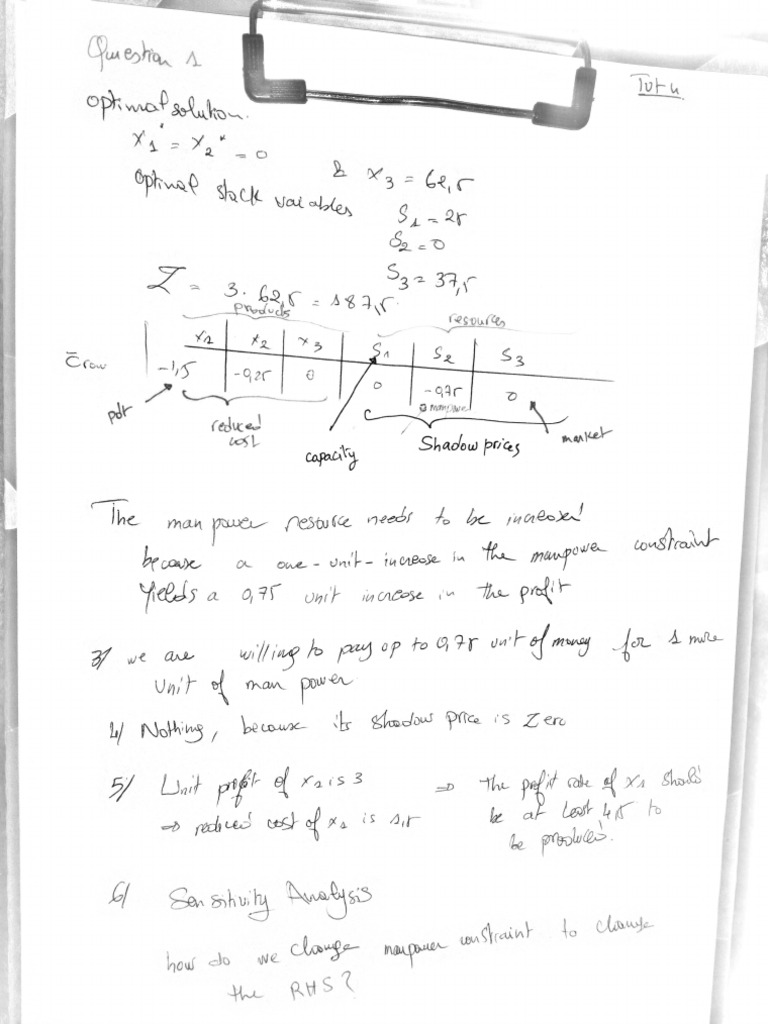 Question 1
Tut 4.
Optimal solution.
x₁* = x₂* = 0 & x₃ = 62,5
Optimal slack variables S₁ = 25
S₂ = 0
S₃ = 37,5
Z = 3 . 62,5 = 187,5.
products resources
x₁ x₂ x₃ S₁ S₂ S₃
c̄ row -1,5 -0,25 0 0 -0,75 0
manpower
pdt reduced cost capacity Shadow prices market
The man power resource needs to be increased
because a one-unit-increase in the manpower constraint
Yields a 0,75 unit increase in the profit
3/ we are willing to pay up to 0,75 unit of money for 1 more
unit of man power
4/ Nothing, because its shadow price is Zero
5/ Unit profit of x₁ is 3 ⇒ the profit rate of x₁ should
⇒ reduced cost of x₁ is 1,5 be at least 4,5 to
be produced.
6/ Sensitivity Analysis
how do we change manpower constraint to change
the RHS?